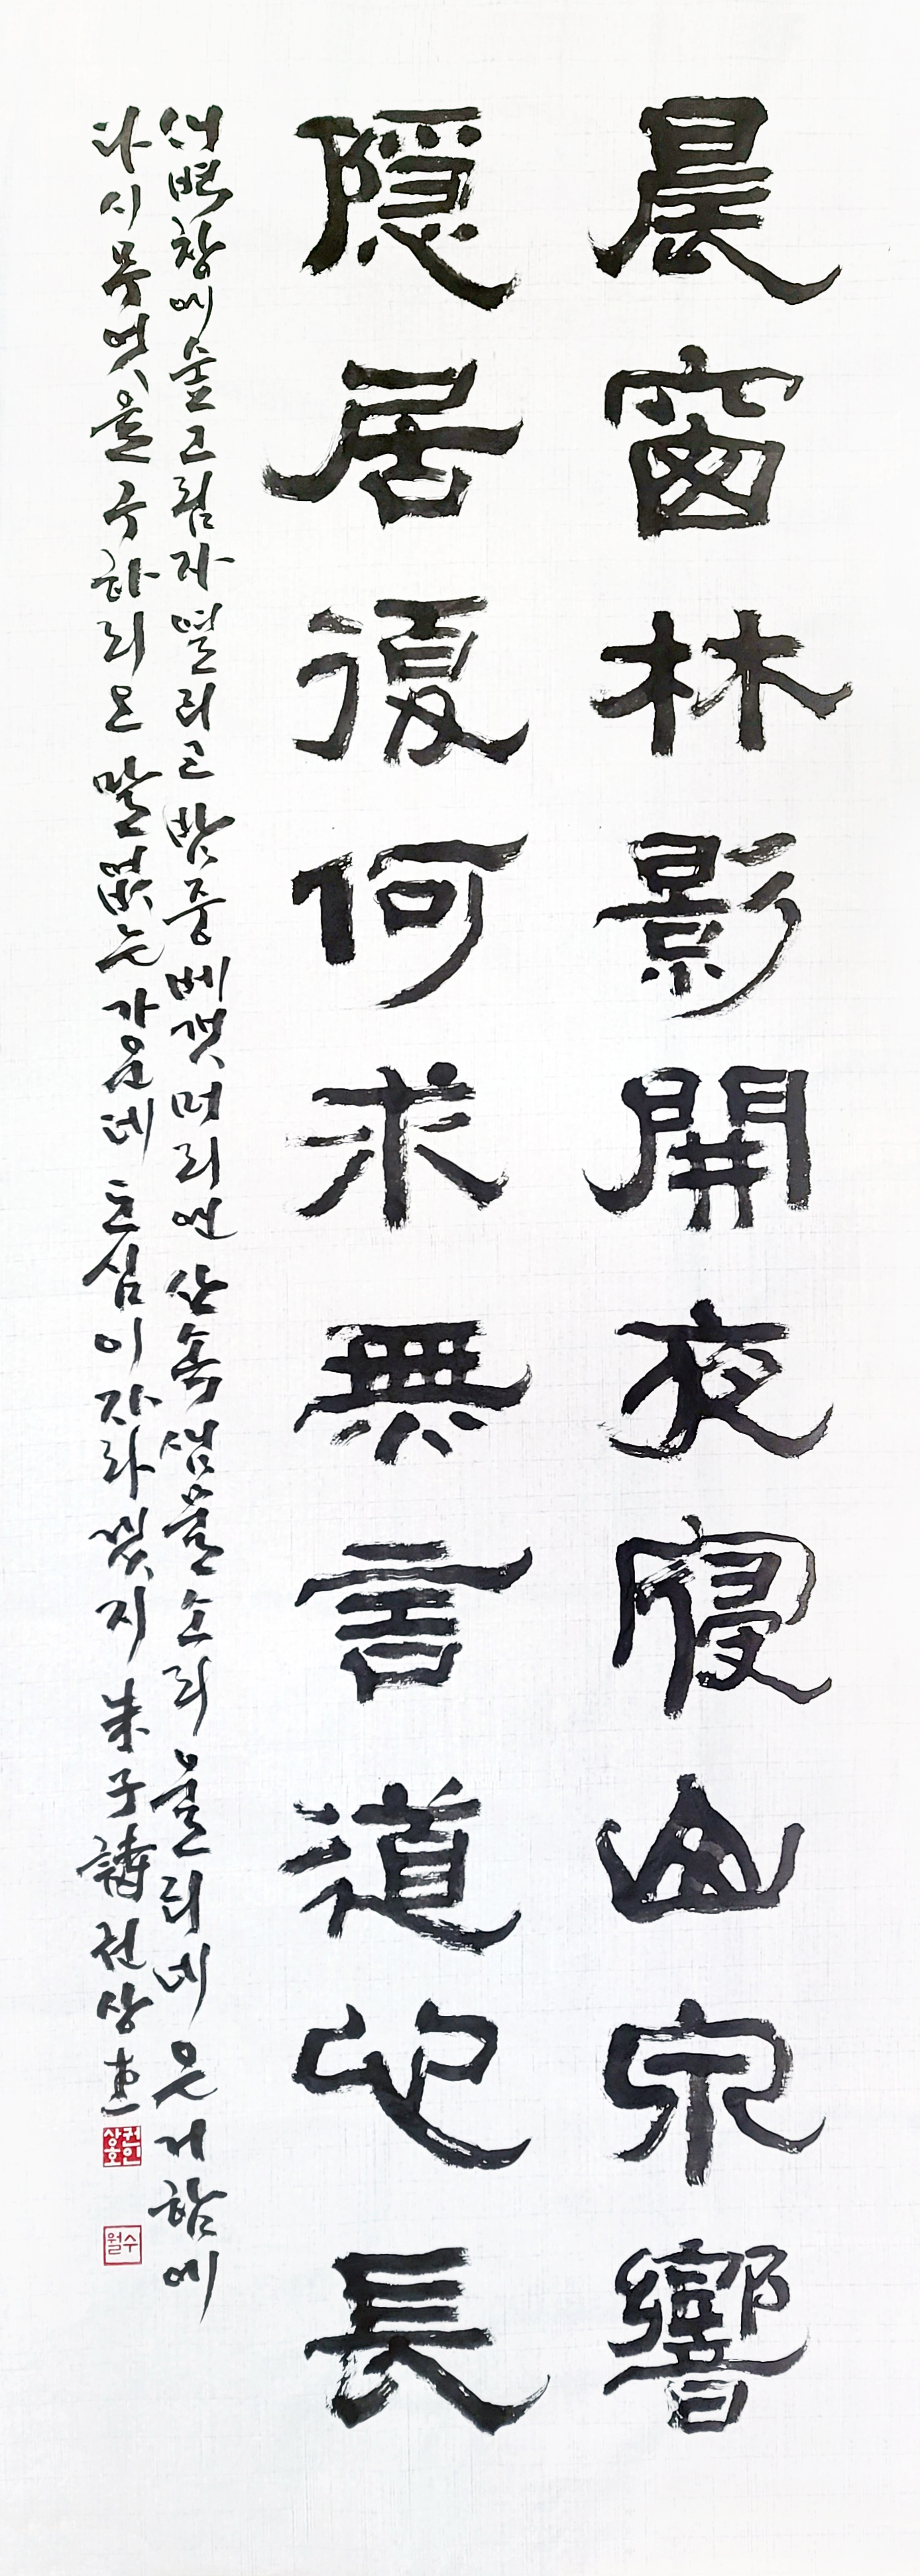 晨窗林影開夜寢山泉響
隱居復何求無言道心長
새벽창에숲그림자열리고밤중베갯머리엔산속샘물소리울리네은거함에
다시무엇을구하리오말없는가운데도심이자라겠지朱子詩권상
권인상호
수월